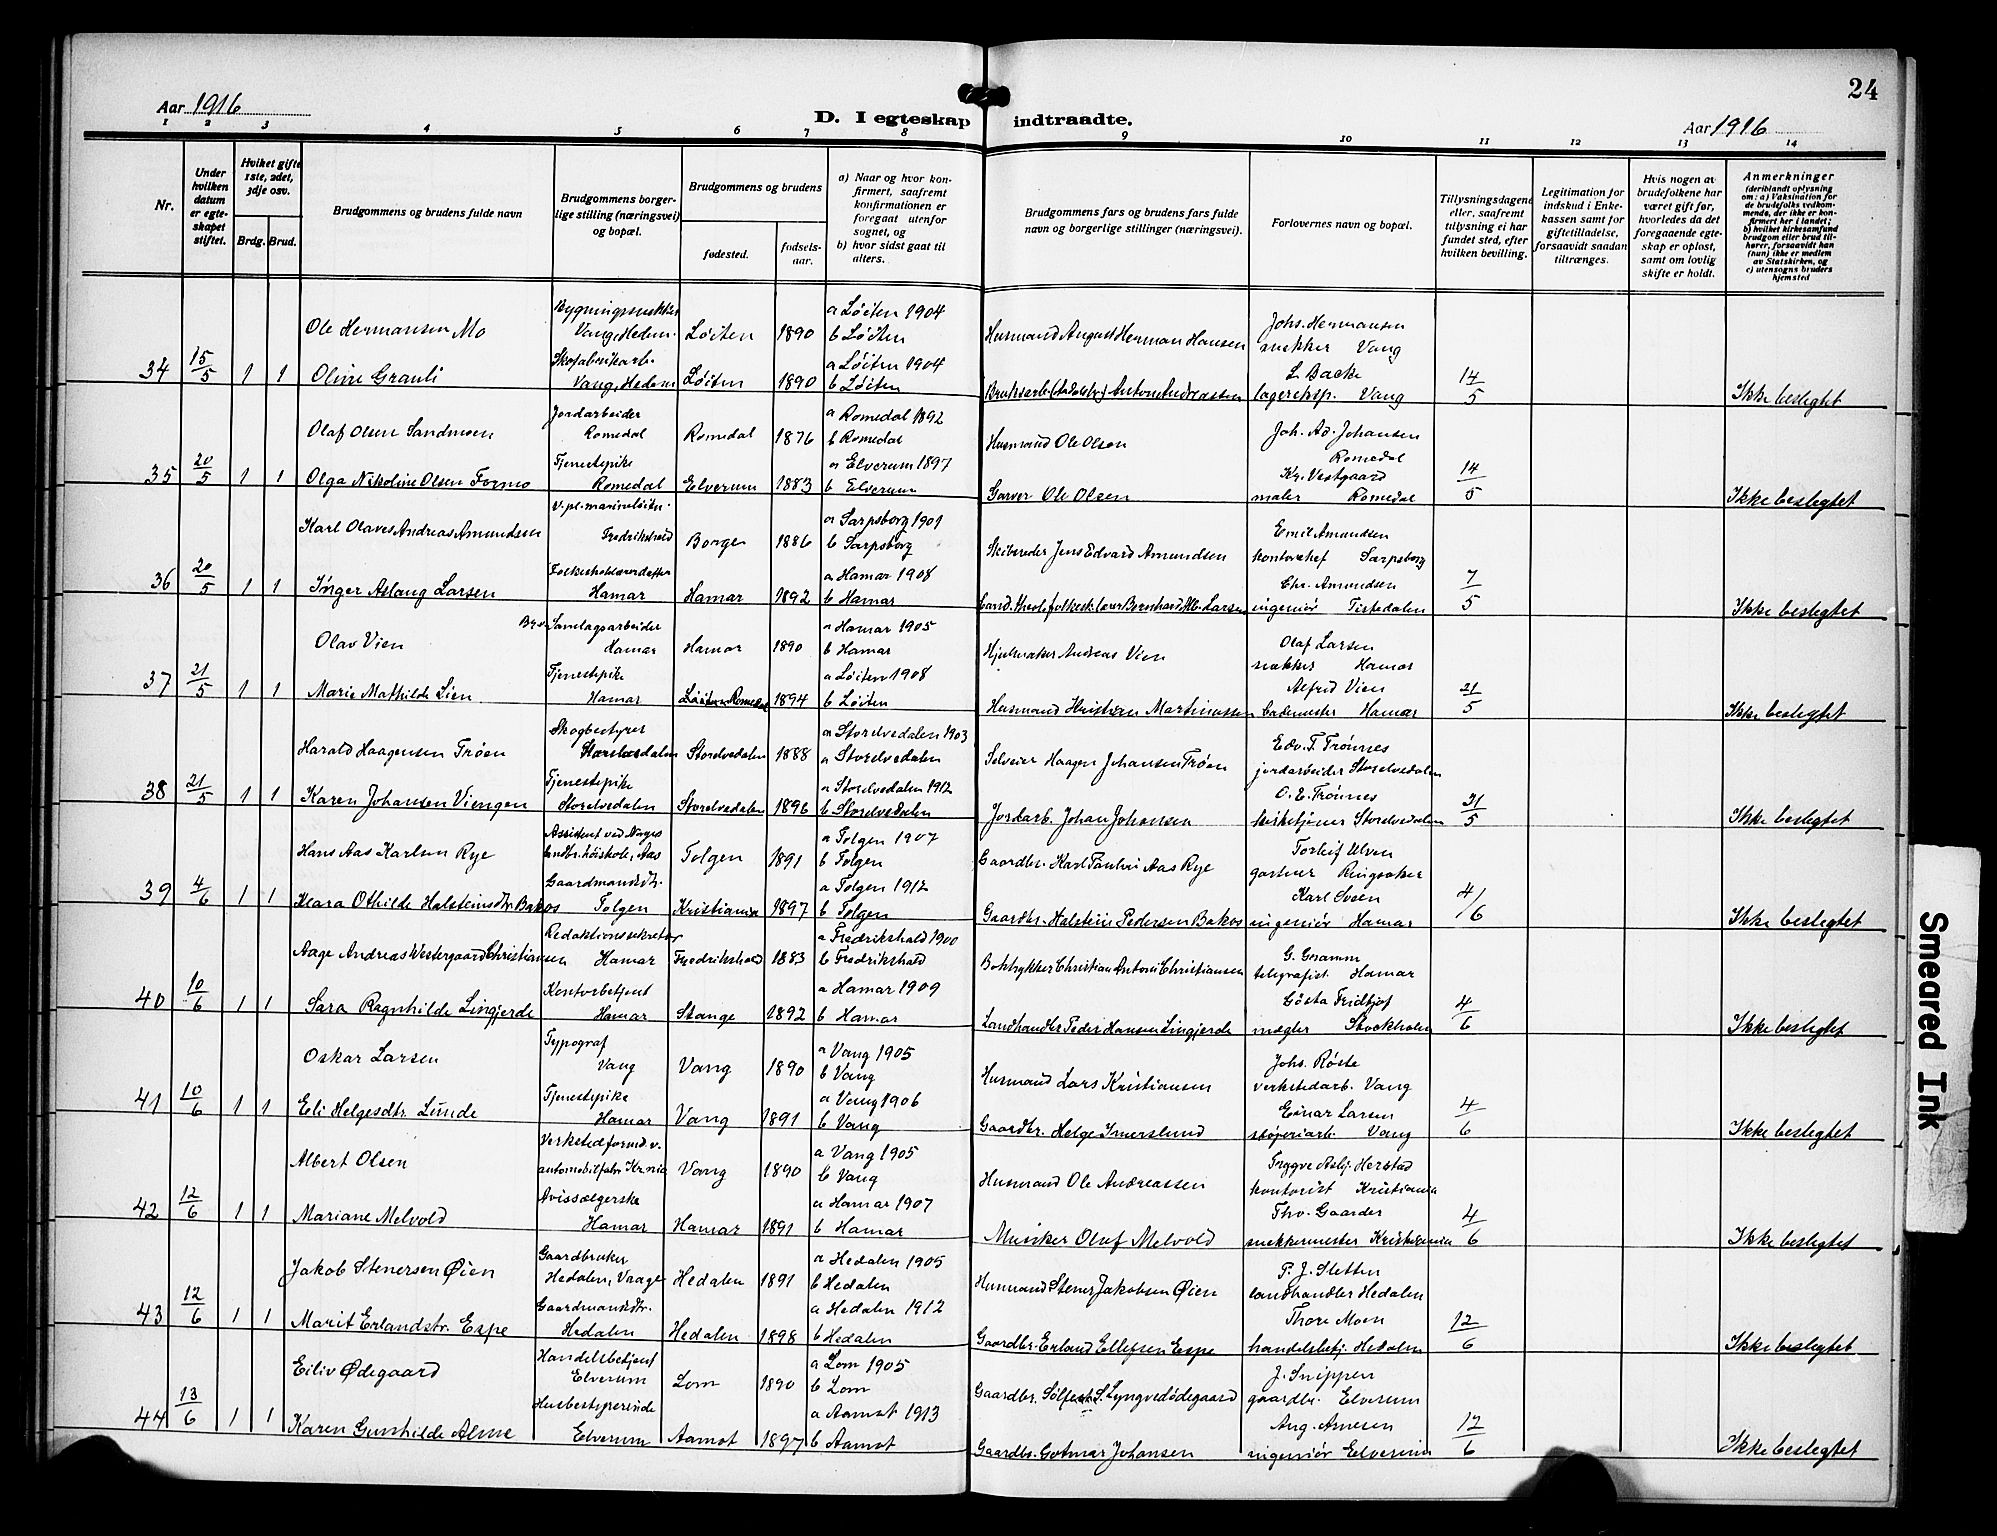 24
Aar 1916
D. I egteskap indtraadte.
Aar 1916
1 2 3 4 5 6 7 8 9 10 11 12 13 14
Nr.
Under hvilken datum er egteskapet stiftet.
Hvilket gifte 1ste, 2det, 3dje osv.
Brdg. Brud.
Brudgommens og brudens fulde navn
Brudgommens borgerlige stilling (næringsvei) og bopæl.
Brudgommens og brudens
fødested.
fødselsaar.
a) Naar og hvor konfirmert, saafremt konfirmationen er foregaat utenfor sognet, og
b) hvor sidst gaat til alters.
Brudgommens fars og brudens fars fulde navn og borgerlige stillinger (næringsvei).
Forlovernes navn og bopæl.
Tillysningsdagene eller, saafremt tillysning ei har fundet sted, efter hvilken bevilling.
Legitimation for indskud i Enkekassen samt for giftetilladelse, forsaavidt saadan tiltrænges.
Hvis nogen av brudefolkene har været gift før, hvorledes da det foregaaende egteskap er opløst, samt om lovlig skifte er holdt.
Anmerkninger
(deriblandt oplysning om: a) Vaksination for de brudefolks vedkommende, der ikke er konfirmert her i landet; b) hvilket kirkesamfund brudgom eller brud tilhører, forsaavidt han (hun) ikke er medlem av Statskirken, og c) utensogns bruders hjemsted
Ole Hermansen Mo Bygningssnekker Vang, Hedem. Løiten 1890 a Løiten 1904 b Løiten Husmand August Herman Hansen Johs. Hermansen snekker Vang
34 15/5 1 1 Oline Grauli Skofabrikarb. Vang, Hedem Løiten 1890 a Løiten 1904 b Løiten Bruksarb. Anton Andreassen L. Backe lagereksp. Vang 14/5 Ikke beslegtet
Olaf Olsen Sandmoen Jordarbeider Romedal Romedal 1876 a Romedal 1892 b Romedal Husmand Ole Olsen Joh. Ad. Johansen Romedal
35 20/5 1 1 Olga Nikoline Olsen Formo Tjenestepike Romedal Elverum 1883 a Elverum 1897 b Elverum Garver Ole Olsen Kr. Vestgaard maler Romedal 14/5 Ikke beslegtet
Karl Olaves Andreas Amundsen V.pl. marineløitn. Fredrikshald Borge 1886 a Sarpsborg 1901 b Sarpsborg Skibsreder Jens Edvard Amundsen Emil Amundsen kontorchef Sarpsborg
36 20/5 1 1 Inger Aslaug Larsen Hamar Hamar 1892 a Hamar 1908 b Hamar Cand. theol. Bernhard Larsen Chr. Amundsen ingeniør Tistedalen 7/5 Ikke beslegtet
Olav Vien Hamar Hamar 1890 a Hamar 1905 b Hamar Hjulmaker Andreas Vien Olaf Larsen snekker Hamar
37 21/5 1 1 Marie Mathilde Lien Tjenestepike Hamar Romedal 1894 a Løiten 1908 b Løiten Husmand Kristian Martinussen Alfred Vien bademester Hamar 21/5 Ikke beslegtet
Harald Haagensen Trøen Skogbestyrer Storelvedalen Storelvedalen 1888 a Storelvedalen 1903 a Storelvedalen Selveier Haagen Johansen Trøen Edv. T. Trønnes jordarbeider Storelvedalen
38 21/5 1 1 Karen Johansen Viengen Tjenestepike Storelvedalen Storelvedalen 1896 a Storelvedalen 1912 b Storelvedalen Jordarb. Johan Johansen O. E. Trønnes kirketjener Storelvedalen 21/5 Ikke beslegtet
Hans Aas Karlsen Rye Assistent ved Norges landbr. høiskole, Aas Tolgen 1891 a Tolgen 1907 b Tolgen Gaardbr. Karl Paulus Aas Rye Torleif Ulven gartner Ringsaker
39 4/6 1 1 Klara Othilde Halsteinsdtr. Bakos Gaardmandsdtr. Tolgen Kristiania 1897 a Tolgen 1912 b Tolgen Gaardbr. Halstein Pedersen Bakos Karl Sveen ingeniør Hamar 4/6 Ikke beslegtet
Aage Andreas Westergaard Christiansen Redaktionssekretær Hamar Fredrikshald 1883 a Fredrikshald 1900 b Fredrikshald Boktrykker Christian Anton Christiansen G. Gramm telegrafist Hamar
40 10/6 1 1 Sara Ragnhilde Lingjerde Kontorbetjent Hamar Stange 1892 a Hamar 1909 b Hamar Landhandler Peder Hansen Lingjerde Gösta Fridtjof mægler Stockholm 4/6 Ikke beslegtet
Oskar Larsen Typograf Vang Vang 1890 a Vang 1905 b Vang Husmand Lars Kristiansen Johs. Røste verkstedarb. Vang
41 10/6 1 1 Eli Helgesdtr. Lunde Tjenestepike Hamar Vang 1891 a Vang 1906 b Vang Gaardbr. Helge Imerslund Einar Larsen støperiarb. Vang 4/6 Ikke beslegtet
Albert Olsen Verkstedformd. v. automobilfabr. Kr.nia Vang 1890 a Vang 1905 b Vang Husmand Ole Andreassen Trygve Asbj. Herstad kontorist Kristiania
42 12/6 1 1 Mariane Melvold Avissælgerske Hamar Hamar 1891 a Hamar 1907 b Hamar Musiker Olaf Melvold Thv. Gaarder snekkermester Kristiania 4/6 Ikke beslegtet
Jakob Stenersen Øien Gaardbruker Hedalen, Vaage Hedalen 1891 a Hedalen 1905 b Hedalen Husmand Stener Jakobsen Øien P. J. Sletten landhandler Hedalen
43 12/6 1 1 Marit Erlandstr. Espe Gaardmandsdtr. Hedalen Hedalen 1898 a Hedalen 1912 b Hedalen Gaardbr. Erland Ellefsen Espe Thore Moen handelsbetj. Hedalen 12/6 Ikke beslegtet
Eiliv Ødegaard Handelsbetjent Elverum Lom 1890 a Lom 1905 b Lom Gaardbr. J. Snippen gaardbr. Elverum
44 13/6 1 1 Karen Gunhilde Alme Husbestyrerinde Elverum Aamot 1897 a Aamot 1913 b Aamot Gaardbr. Gotmar Johansen Aug. Arnesen ingeniør Elverum 12/6 Ikke beslegtet
Smeared Ink